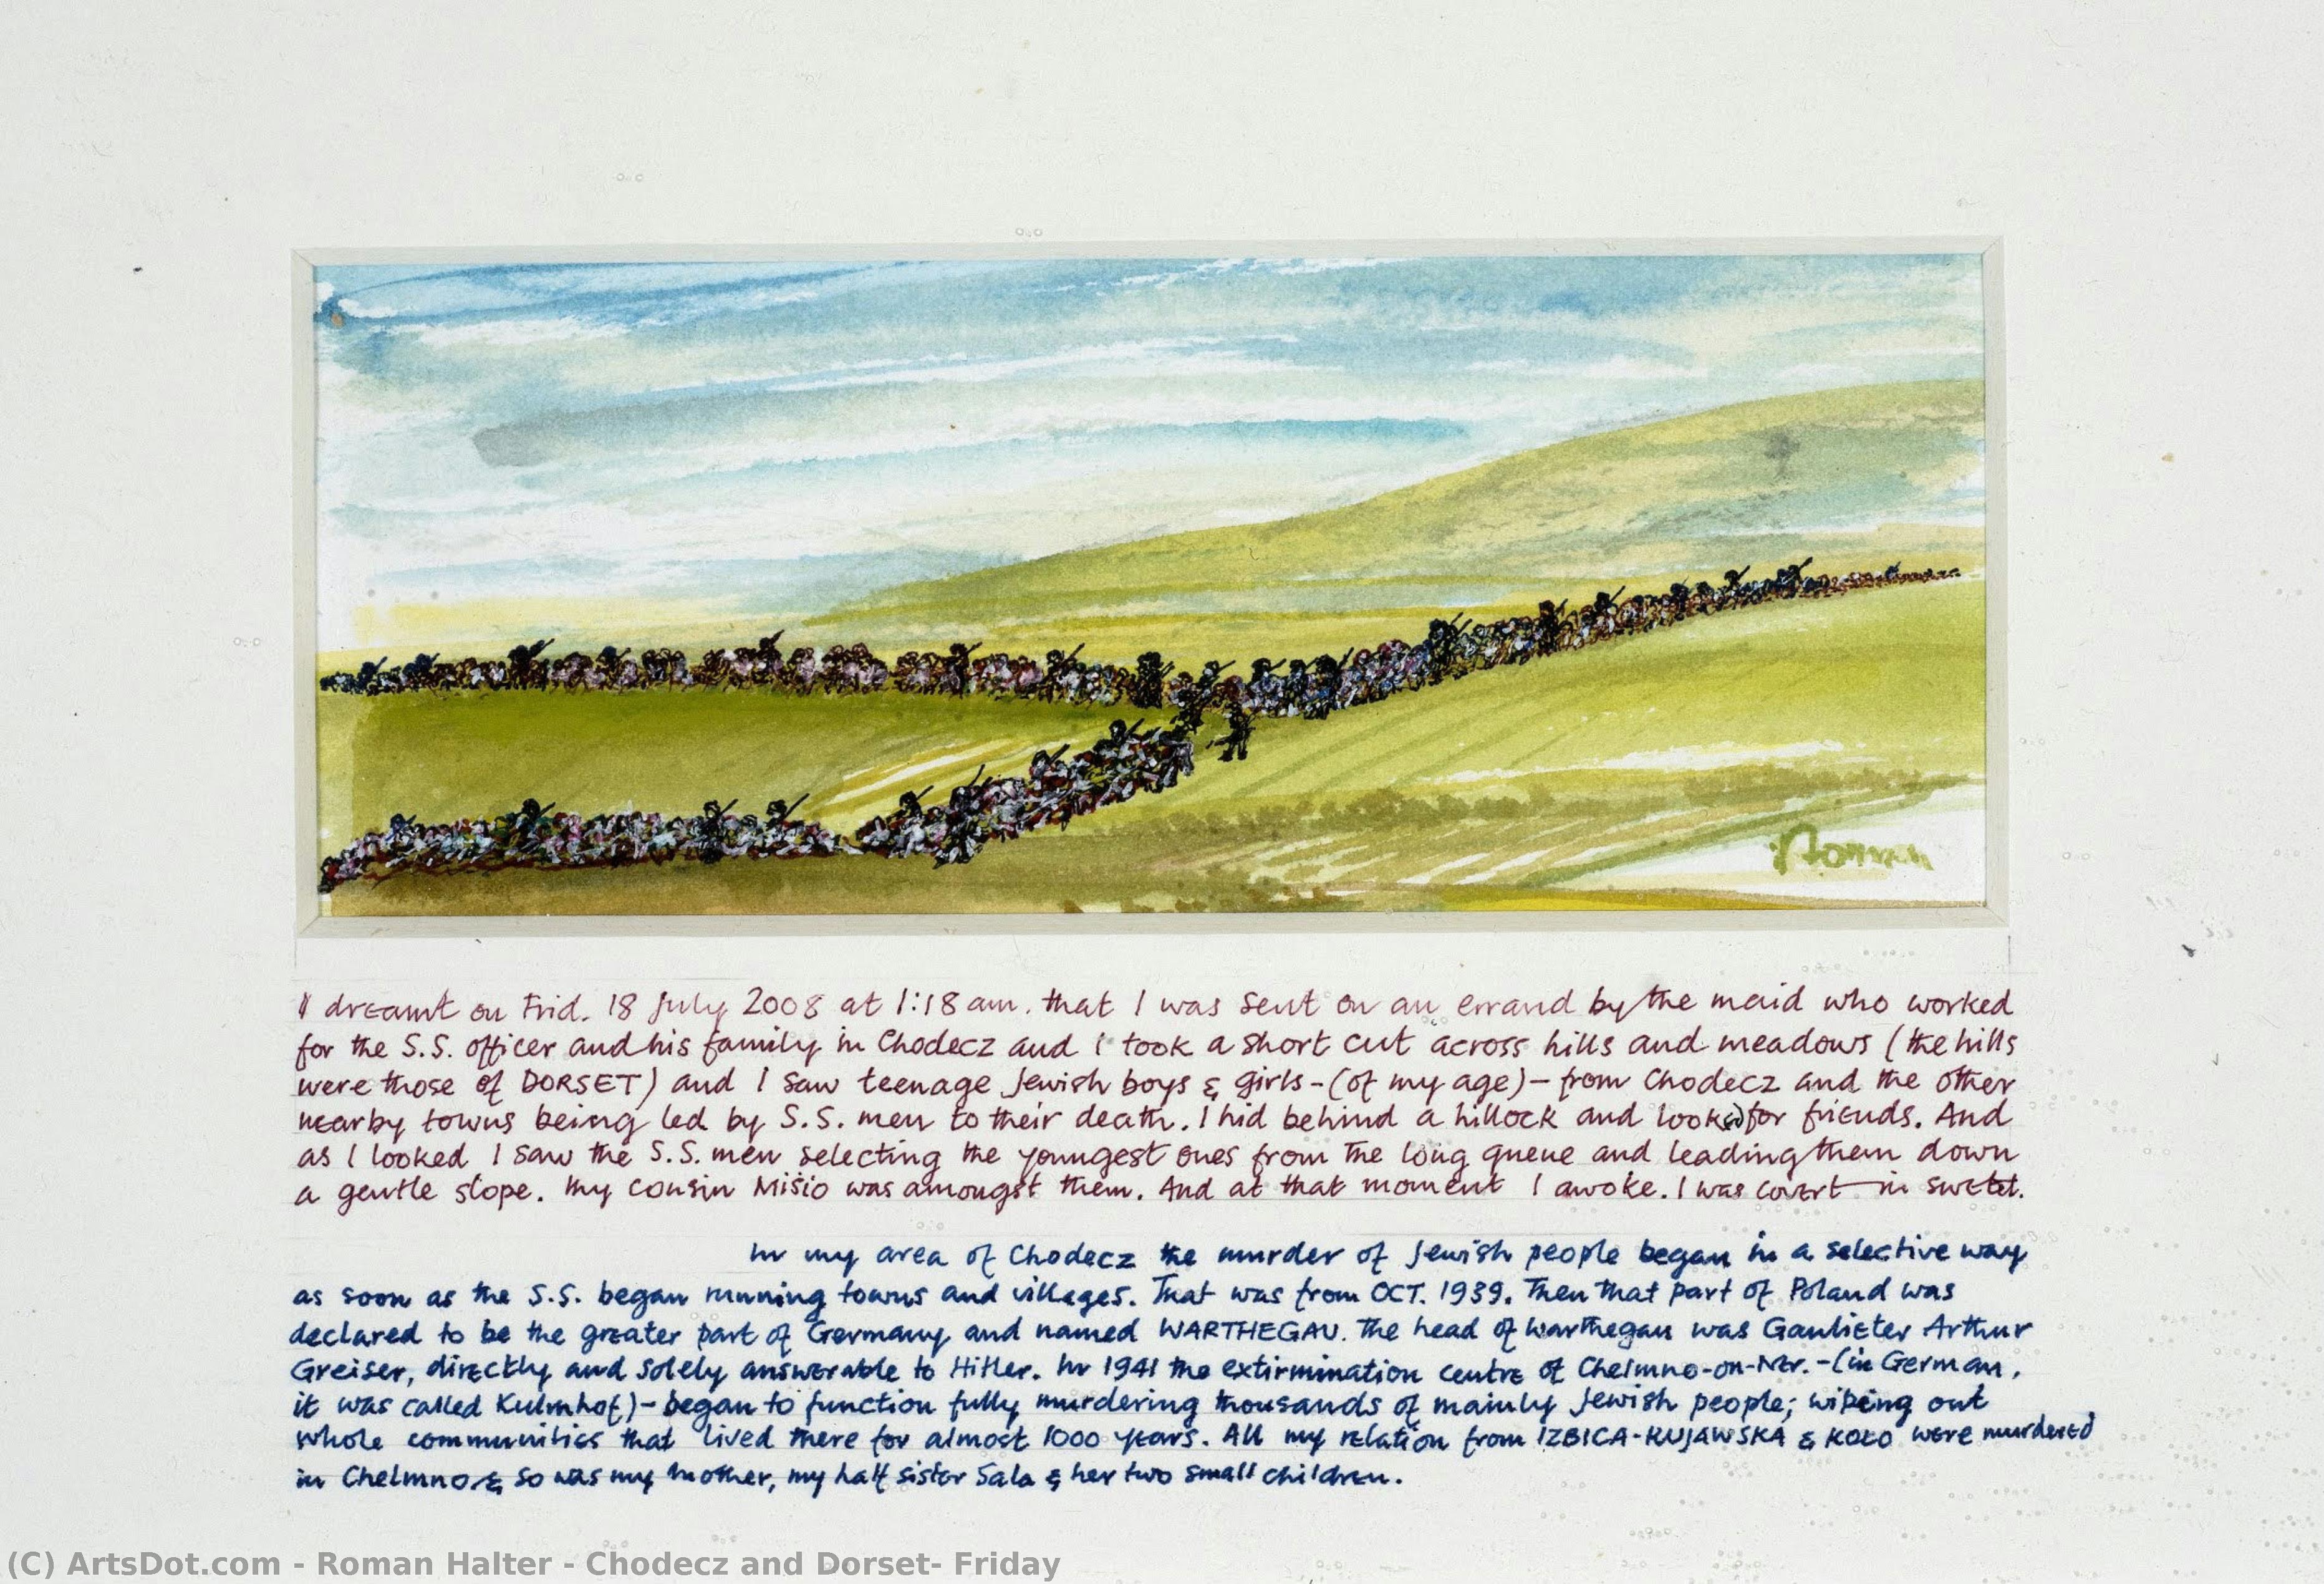 Roman
I dreamt on Frid. 18 July 2008 at 1:18 am. that I was sent on an errand by the maid who worked
for the S.S. officer and his family in Chodecz and I took a short cut across hills and meadows (the hills
were those of DORSET) and I saw teenage Jewish boys & girls - (of my age) - from Chodecz and the other
nearby towns being led by S.S. men to their death. I hid behind a hillock and looked for friends. And
as I looked I saw the S.S. men selecting the youngest ones from the long queue and leading them down
a gentle slope. My cousin Misio was amongst them. And at that moment I awoke. I was covert in
In my area of Chodecz the murder of Jewish people began in a selective way
as soon as the S.S. began running towns and villages. That was from OCT. 1939. Then that part of Poland was
declared to be the greater part of Germany and named WARTHEGAU. The head of Warthegau was Gaulieter Arthur
Greiser, directly and solely answerable to Hitler. In 1941 the extirmination centre of Chelmno-on-Ner. - (in German,
it was called Kulmhof) - began to function fully murdering thousands of mainly Jewish people; wiping out
whole communities that lived there for almost 1000 years. All my relation from IZBICA-KUJAWSKA & KOŁO were murdered
in Chelmno & so was my mother, my half sister Sala & her two small children.
(C) ArtsDot.com - Roman Halter - Chodecz and Dorset- Friday